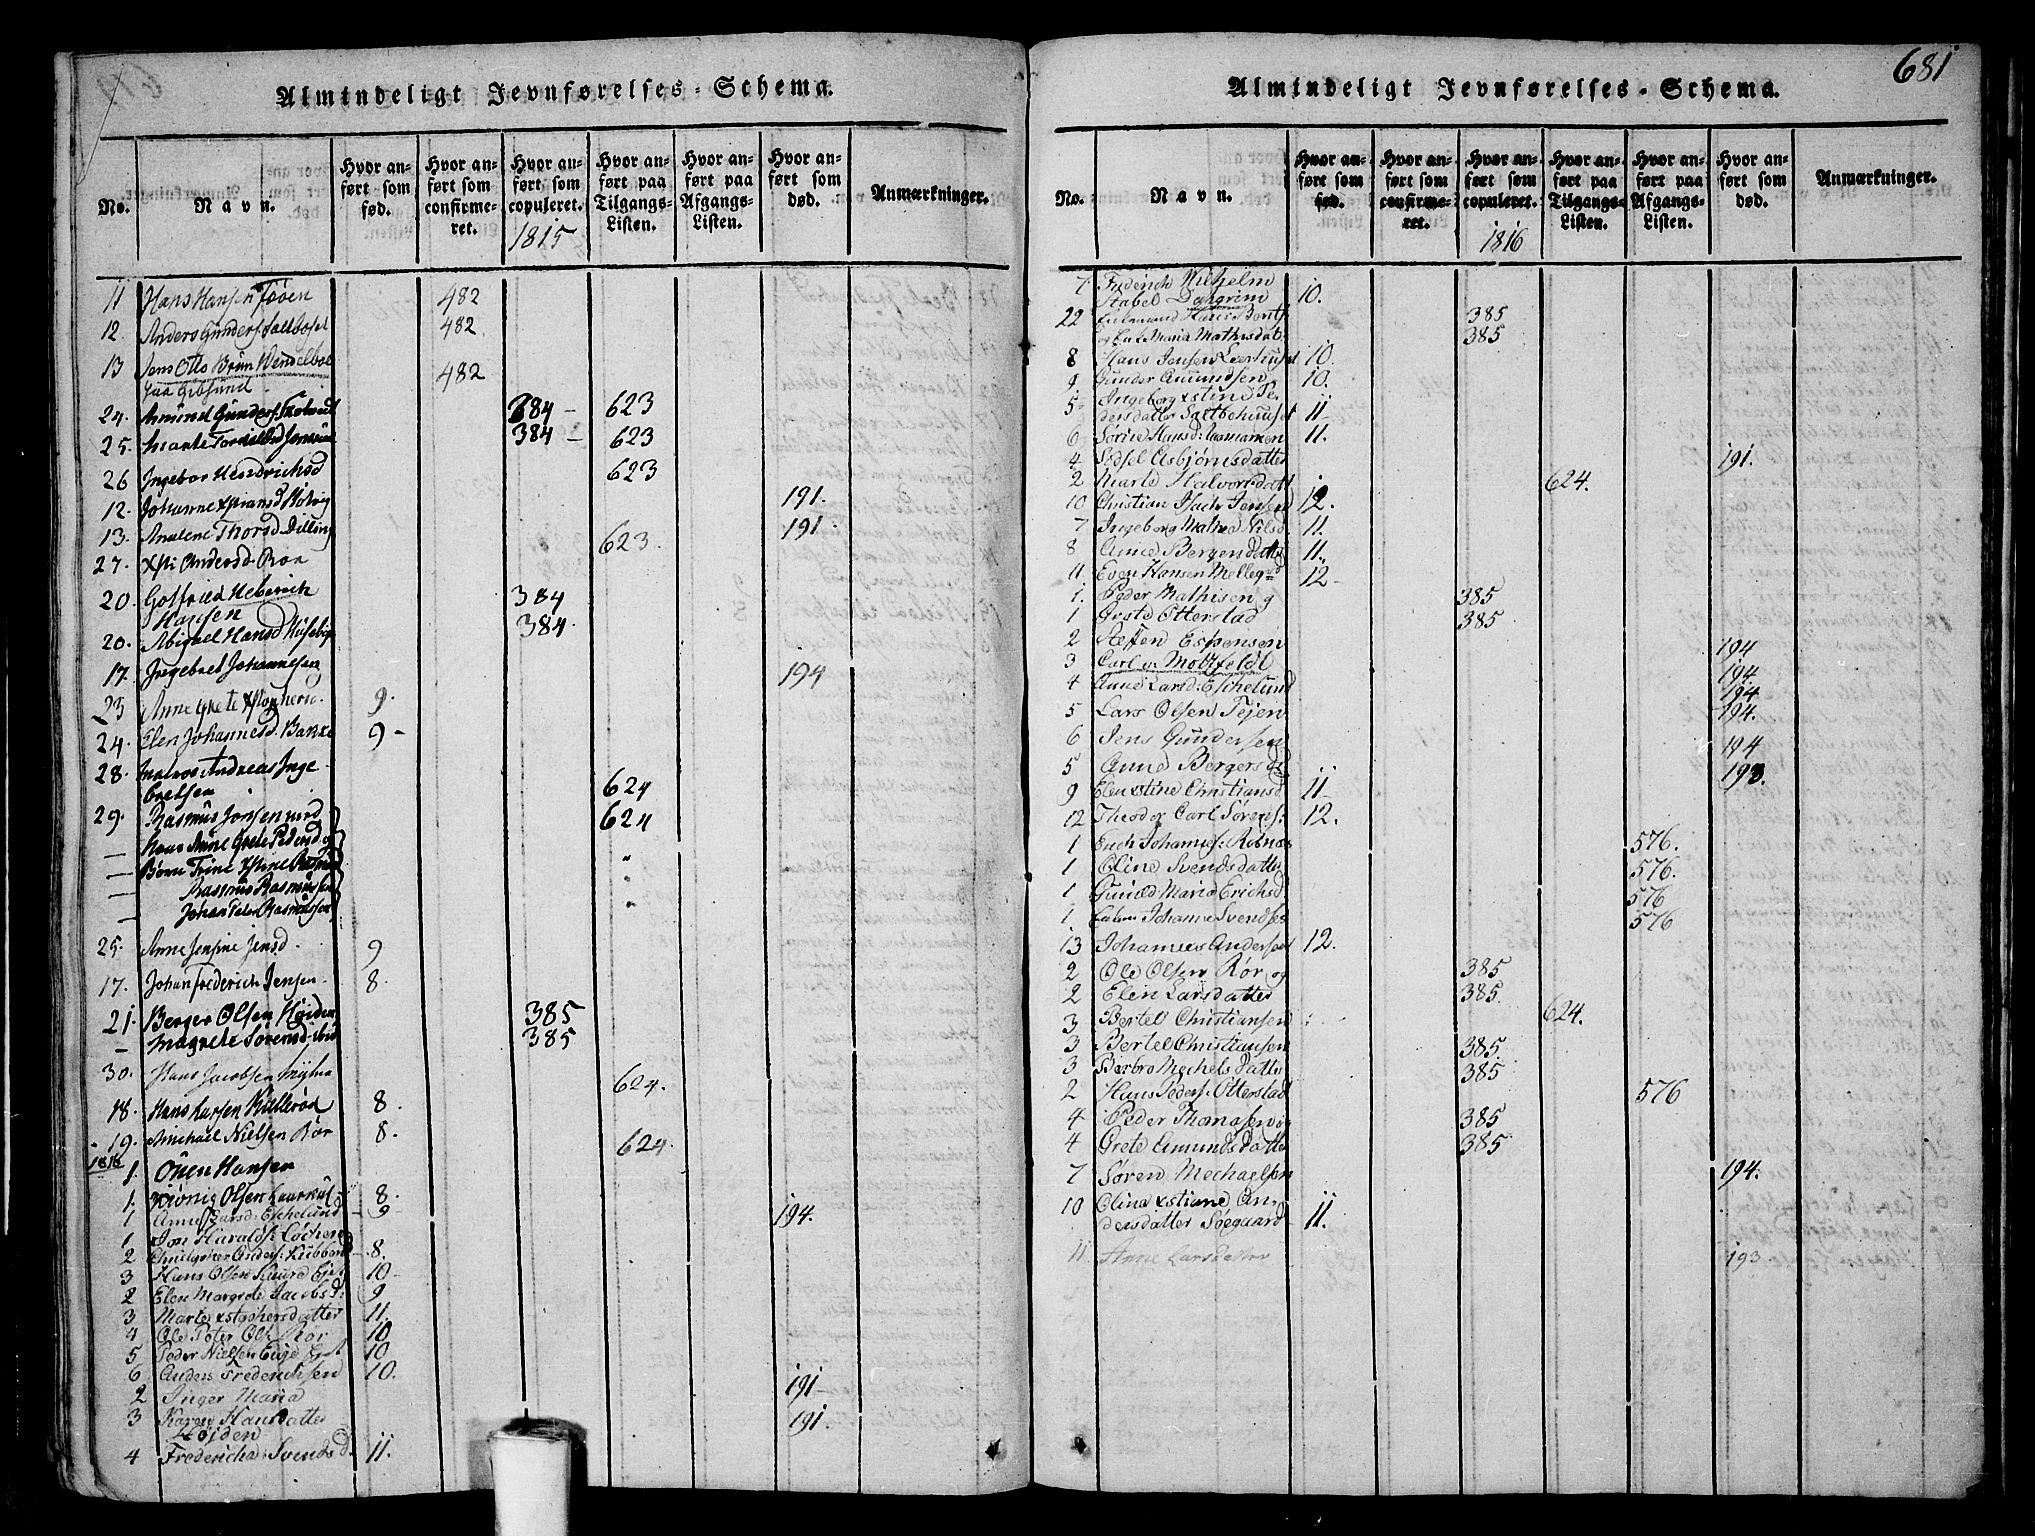 Almindeligt Jevnførelses-Schema.
No. Navn. Hvor anført som fød. Hvor anført som confirmeret. Hvor anført som copuleret. Hvor anført paa Tilgangs-Listen. Hvor anført paa Afgangs-Listen. Hvor anført som død. Anmærkninger.
1815
11 Hans Hansen 482
12. Anders Gunders 482
13 Jens Otto Brün Wendelboe 482
24. Amund Gunders 384 - 623
25. 384 - 623
26 Ingebor Hendrichsd 623
12. Johanne 191.
13. Malene Thorsd Dilling 191.
27. Andersd Roa 623.
20. Gotfried Heberich
Hansen 384
20. Abigael Hansd 384.
17. Ingebret Johannesen 194
23 Anne Grete 9.
24. Elen Johannesd. Bakke 9-
28. Andreas Inge-
bretsen 624
29. Rasmus Jonsen med 624
— Anne Grete Pedersd og
— Børn Trine "
— Rasmus Rasmussen "
— Johan Peter Rasmussen "
25. Anne Jensine Jensd. 9
17. Johan Frederich Jensen 8.
21. Berger Olsen Høiden 385
— Magrete Sørensd. 385
30. Hans Jacobsen 624.
18. Hans Larsen Killerød 8.
19. Michael Nielsen Rør 8. 624.
1816
1. Ouen Hansen
1. Olsen 8.
1 Anne Larsd: Eskelund - 9 194.
1 Jon Haralds:
2 Anders: 8.
3 Hans Olsen 10
2 Elen Margrete Jacobsd: 9
3 Marte xstophersdatter 11.
4 Ole Peter Ols: Rør 10
5 Peder Nielsen 10
6 Anders Frederichsen 10.
2 Inger Maria 191-
3 Karen Hansdatter
Høiden 191.
4 Fredericha Svendsd. 11.
681
Almindeligt Jevnførelses-Schema.
No. Navn. Hvor anført som fød. Hvor anført som confirmeret. Hvor anført som copuleret. Hvor anført paa Tilgangs-Listen. Hvor anført paa Afgangs-Listen. Hvor anført som død. Anmærkninger.
1816
7 Frederich Wilhelm
Stabel 10.
22 Hans 385
Maria Mathisdat 385
8 Hans Jensen 10.
9 Gunder Amundsen 10.
5. Ingeborg xstine Pe-
dersdatter Saltbohuuset 11
6 Sørine Hansd: 11.
4 Sidsel Asbjørnsdatter 191.
2 Marte Halvorsdatt 624.
10 Christian Jensen 12.
7 Ingeborg Mathea Nilsd. 11.
8 Anne Bergersdatter 11.
11 Even Hansen Mellegrd 12
1. Peder Mathisen og 385
1 Otterstad 385
2 Steffen Espensen 194
3 Carl v: Moltzfeldt 194.
4 Anne Larsd: Eschelund 194
5 Lars Olsen Tejen 194.
6 Jens Gundersen 194
5 Anne Bergersd 193.
9 Elen xstine Christiansd 11
12 Theodor Carl Sørens: 12.
1 Erich Johannes: 576.
1 Oline Svendsdatter 576.
1 Gunild Maria Erichsd 576
1. Johanne Svendse 576
13 Johannes Andersen 12.
2 Ole Olsen Rør og 385
2 Elen Larsdatter 385.
3 Bertel Christiansen 624.
3 Bertel Christiansen 385.
3 Berbro Mechelsdatter 385
2 Hans Peders: Otterstad 576
4 Peder Thomasen og 385
4 Grete Amundsdatter 385
7 Søren Mechaelsen 194.
10 Olina xstiane An-
dersdatter Søegaard 11.
11 Anne Larsdatter 193